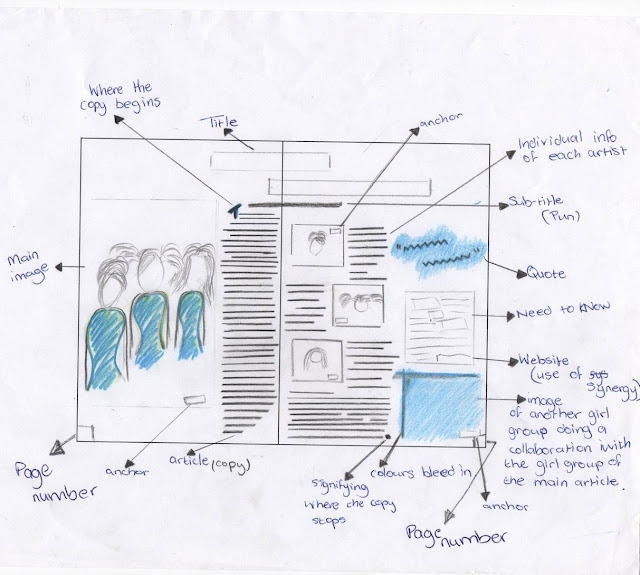 Where the
copy begins
Title
anchor
Individual info
of each artist
Sub-title
(Pun)
Main
image
Quote
Need to know
Website
(use of sys
Synergy)
image
of another girl
group doing a
collaboration with
the girl group of
the main article.
Page
number
anchor
article (copy)
signifying
where the copy
stops
colours bleed in
anchor
Page
number